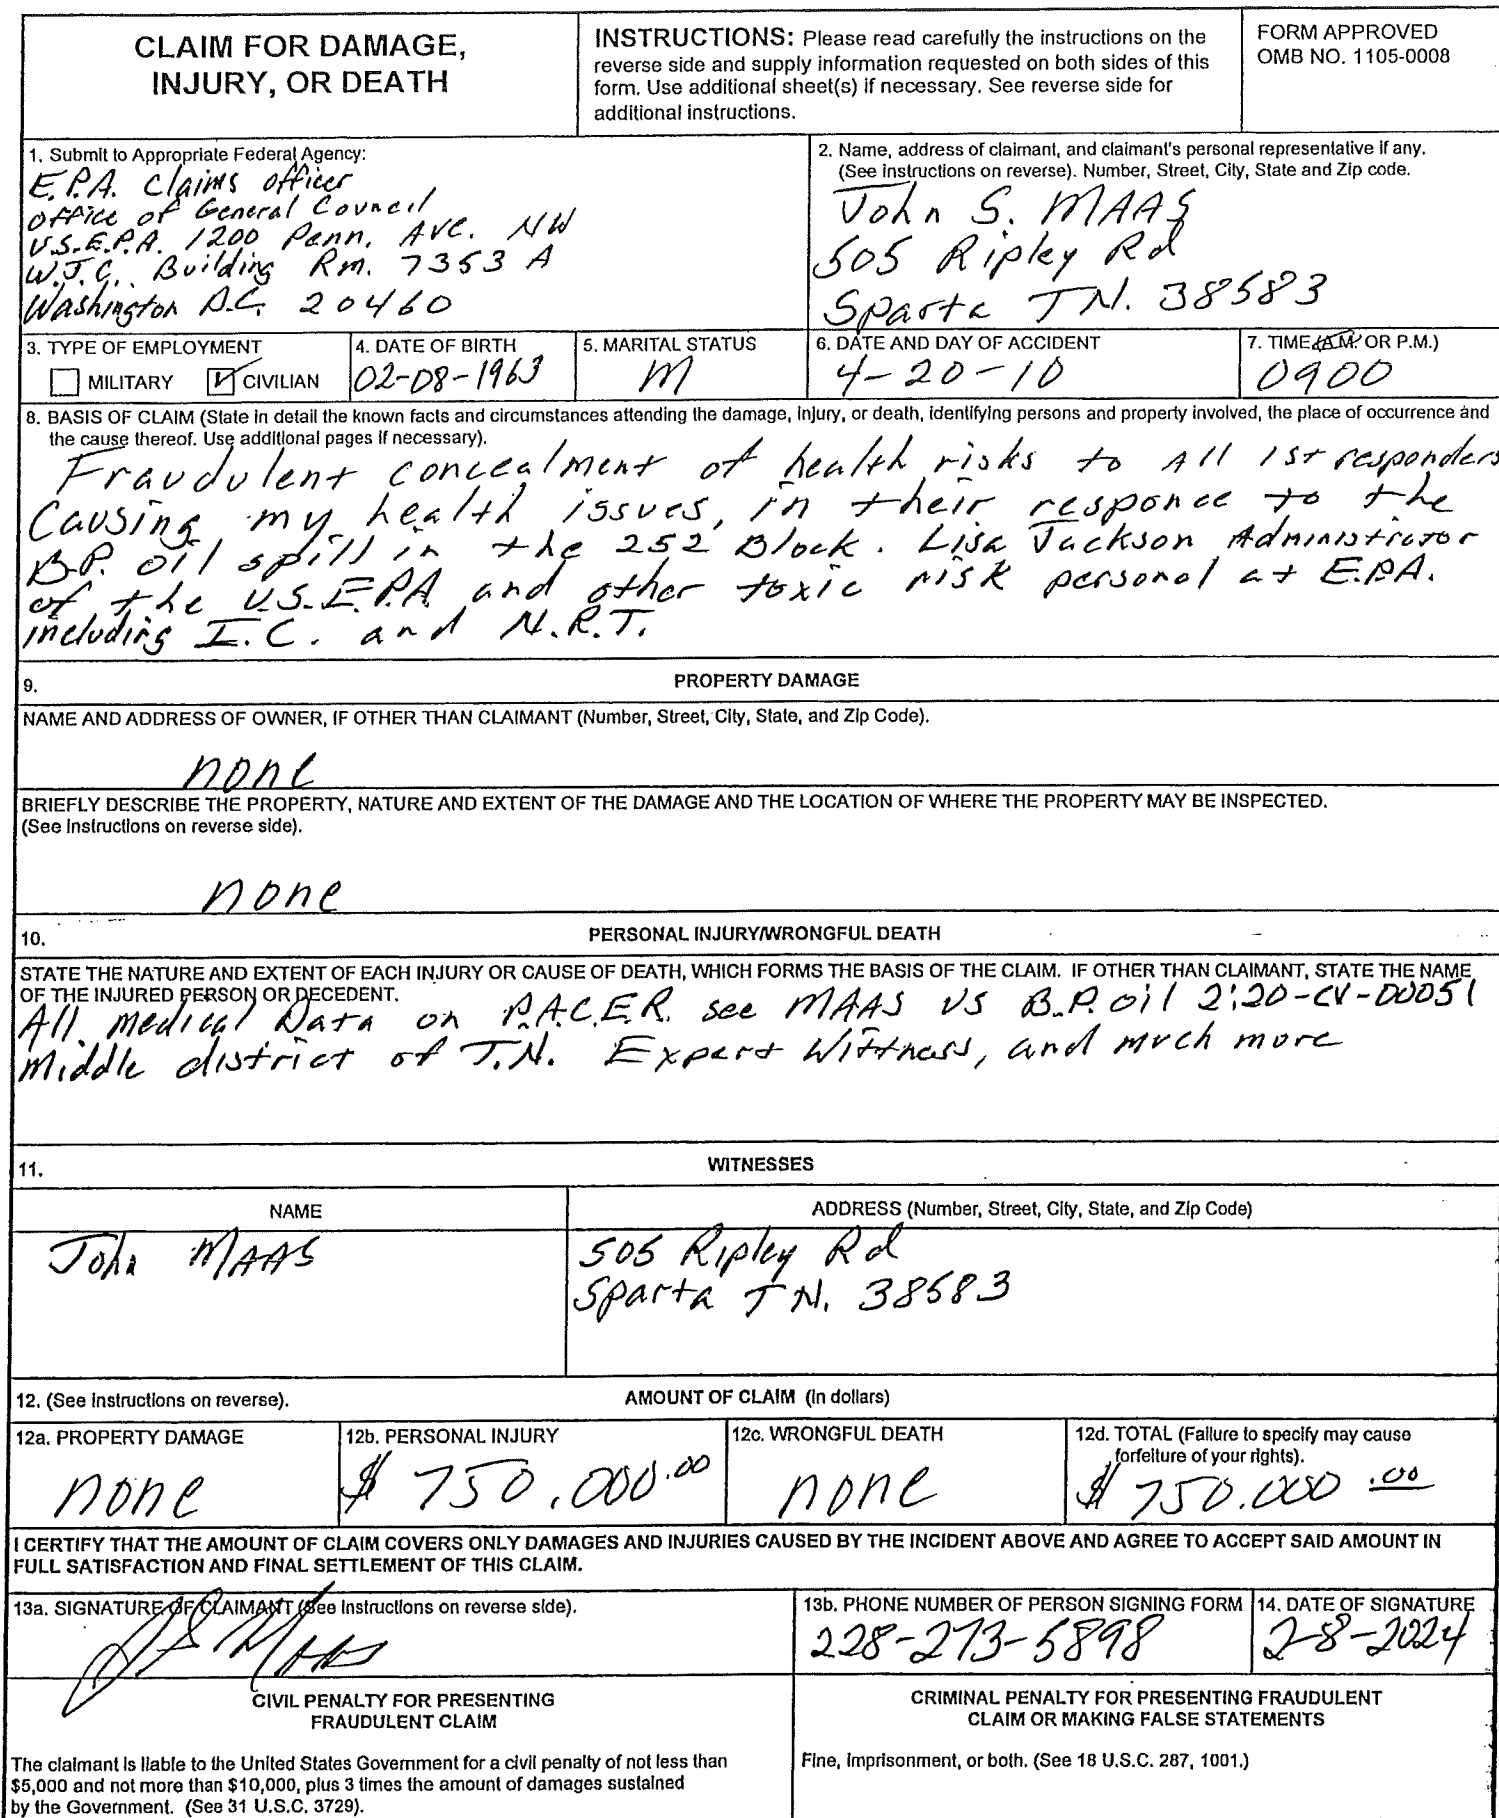 CLAIM FOR DAMAGE,
INJURY, OR DEATH
INSTRUCTIONS: Please read carefully the instructions on the
reverse side and supply information requested on both sides of this
form. Use additional sheet(s) if necessary. See reverse side for
additional instructions.
FORM APPROVED
OMB NO. 1105-0008
1. Submit to Appropriate Federal Agency:
E.P.A. Claims officer
office of General Council
U.S.E.P.A. 1200 Penn. Ave. NW
W.J.C. Building Rm. 7353 A
Washington D.C. 20460
2. Name, address of claimant, and claimant's personal representative if any.
(See instructions on reverse). Number, Street, City, State and Zip code.
John S. MAAS
505 Ripley Rd
Sparta TN. 38583
3. TYPE OF EMPLOYMENT
MILITARY CIVILIAN
4. DATE OF BIRTH
02-08-1963
5. MARITAL STATUS
M
6. DATE AND DAY OF ACCIDENT
4-20-10
7. TIME (A.M. OR P.M.)
0900
8. BASIS OF CLAIM (State in detail the known facts and circumstances attending the damage, injury, or death, identifying persons and property involved, the place of occurrence and
the cause thereof. Use additional pages if necessary).
Fraudulent concealment of health risks to All 1st responders
Causing my health issues, in their responce to the
B.P. oil spill in the 252 Block. Lisa Jackson Administrator
of the U.S.E.P.A. and other toxic risk personal at E.P.A.
including I.C. and N.R.T.
9. PROPERTY DAMAGE
NAME AND ADDRESS OF OWNER, IF OTHER THAN CLAIMANT (Number, Street, City, State, and Zip Code).
none
BRIEFLY DESCRIBE THE PROPERTY, NATURE AND EXTENT OF THE DAMAGE AND THE LOCATION OF WHERE THE PROPERTY MAY BE INSPECTED.
(See Instructions on reverse side).
none
10. PERSONAL INJURY/WRONGFUL DEATH
STATE THE NATURE AND EXTENT OF EACH INJURY OR CAUSE OF DEATH, WHICH FORMS THE BASIS OF THE CLAIM. IF OTHER THAN CLAIMANT, STATE THE NAME
OF THE INJURED PERSON OR DECEDENT.
All medical Data on P.A.C.E.R. see MAAS VS B.P. oil 2:20-CV-00051
Middle district of T.N. Expert Wittness, and much more
11. WITNESSES
NAME
ADDRESS (Number, Street, City, State, and Zip Code)
John MAAS
505 Ripley Rd
Sparta TN. 38583
12. (See Instructions on reverse). AMOUNT OF CLAIM (in dollars)
12a. PROPERTY DAMAGE
none
12b. PERSONAL INJURY
$ 750,000.00
12c. WRONGFUL DEATH
none
12d. TOTAL (Failure to specify may cause
forfeiture of your rights).
$ 750.000 .00
I CERTIFY THAT THE AMOUNT OF CLAIM COVERS ONLY DAMAGES AND INJURIES CAUSED BY THE INCIDENT ABOVE AND AGREE TO ACCEPT SAID AMOUNT IN
FULL SATISFACTION AND FINAL SETTLEMENT OF THIS CLAIM.
13a. SIGNATURE OF CLAIMANT (See Instructions on reverse side).
J S Maas
13b. PHONE NUMBER OF PERSON SIGNING FORM
228-273-5898
14. DATE OF SIGNATURE
2-8-2024
CIVIL PENALTY FOR PRESENTING
FRAUDULENT CLAIM
The claimant is liable to the United States Government for a civil penalty of not less than
$5,000 and not more than $10,000, plus 3 times the amount of damages sustained
by the Government. (See 31 U.S.C. 3729).
CRIMINAL PENALTY FOR PRESENTING FRAUDULENT
CLAIM OR MAKING FALSE STATEMENTS
Fine, imprisonment, or both. (See 18 U.S.C. 287, 1001.)